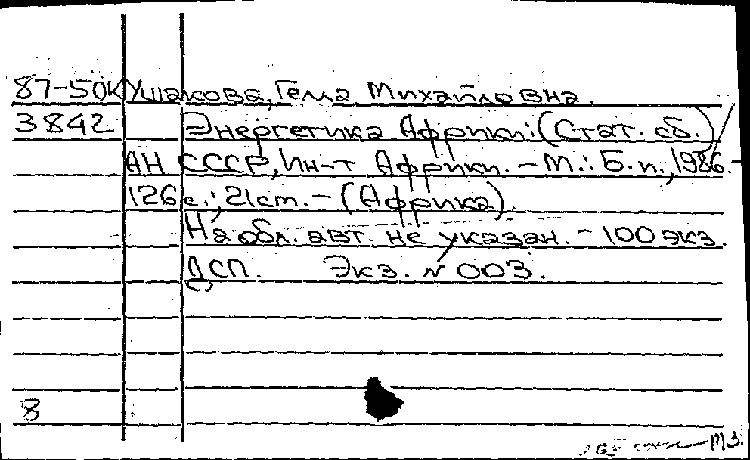 87-50К Ушакова, Гелла Михайловна.
3842 Энергетика Африки: (Стат. сб.) /
АН СССР, Ин-т Африки. - М.: Б.и., 1986. -
126 с.; 21 cm. - (Африка).
На обл. авт. не указан. - 100 экз.
ДСП. Экз. № 003.
8
МЗ.